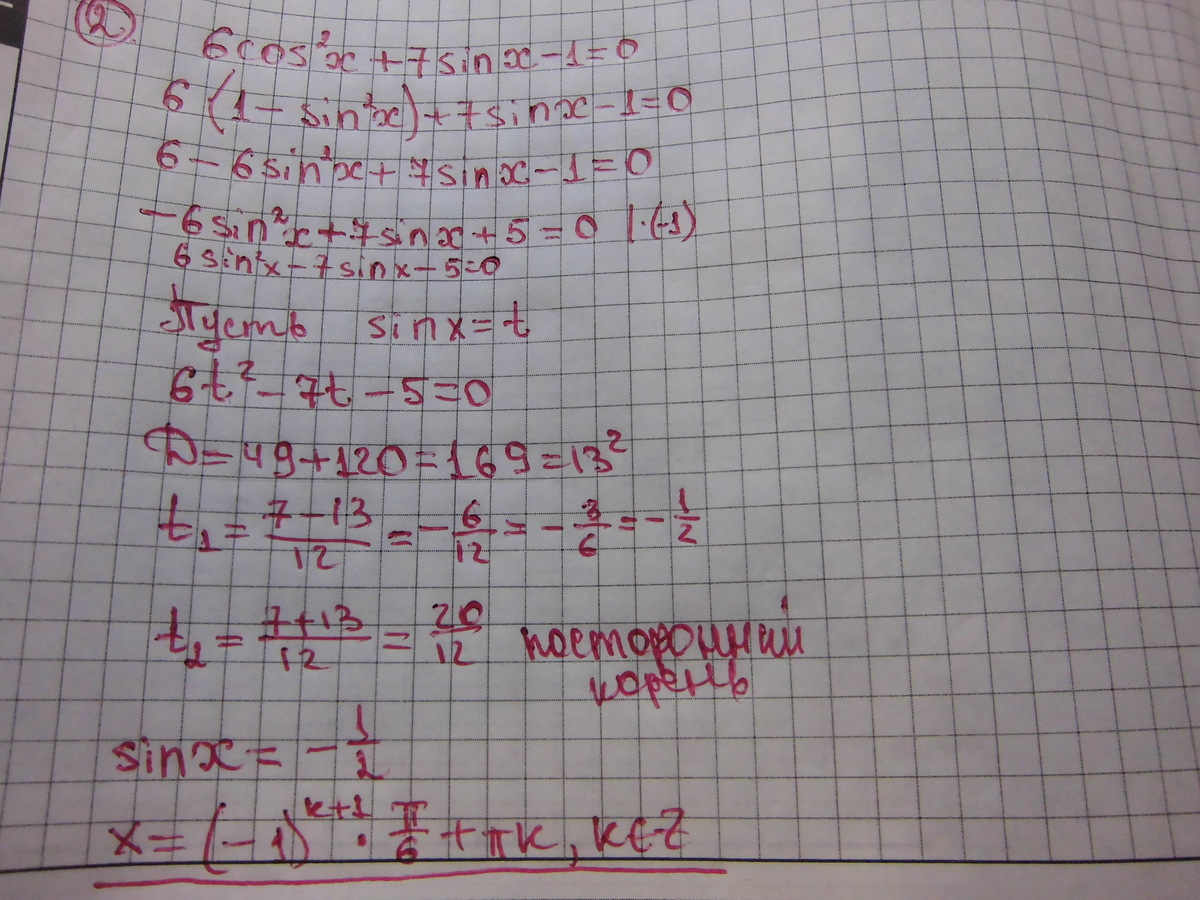 2
6cos²x+7sinx-1=0
6(1-sin²x)+7sinx-1=0
6-6sin²x+7sinx-1=0
-6sin²x+7sinx+5=0 |·(-1)
6sin²x-7sinx-5=0
Пусть sinx=t
6t²-7t-5=0
D=49+120=169=13²
t₁=(7-13)/12=-6/12=-3/6=-1/2
t₂=(7+13)/12=20/12 посторонний
корень
sinx=-1/2
x=(-1)^(k+1)·π/6+πk, k∈Z